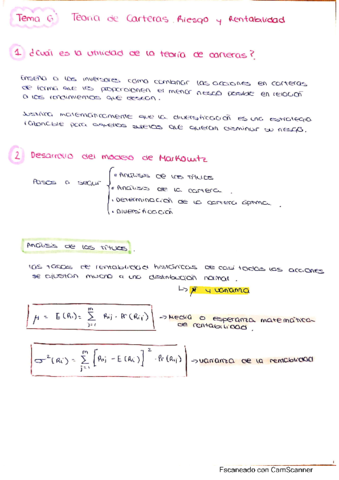 Tema 6: Teoría de Carteras Riesgo y Rentabilidad
1 ¿Cuál es la utilidad de la teoría de carteras?
Enseña a los inversores como combinar las acciones en carteras
de forma que les proporcionen el menor riesgo posible en relación
a los rendimientos que desean.
Justifica matemáticamente que la diversificación es una estrategia
para aquellos que quieran disminuir su riesgo.
2 Desarrollo del modelo de Markowitz
Pasos a seguir
• Análisis de los títulos
• Análisis de la cartera.
• Determinación de la cartera óptima.
• Diversificación
Análisis de los títulos.
Las tasas de rentabilidad históricas de casi todas las acciones
se ajustan mucho a una distribución normal.
↳ μ y varianza
μ = E(Ri) = Σ Rij · Pr(Rij) → Media o esperanza matemática
m
j=1
de rentabilidad.
σ²(Ri) = Σ [Rij − E(Ri)]² · Pr(Rij) → varianza de la rentabilidad
m
j=1
Escaneado con CamScanner